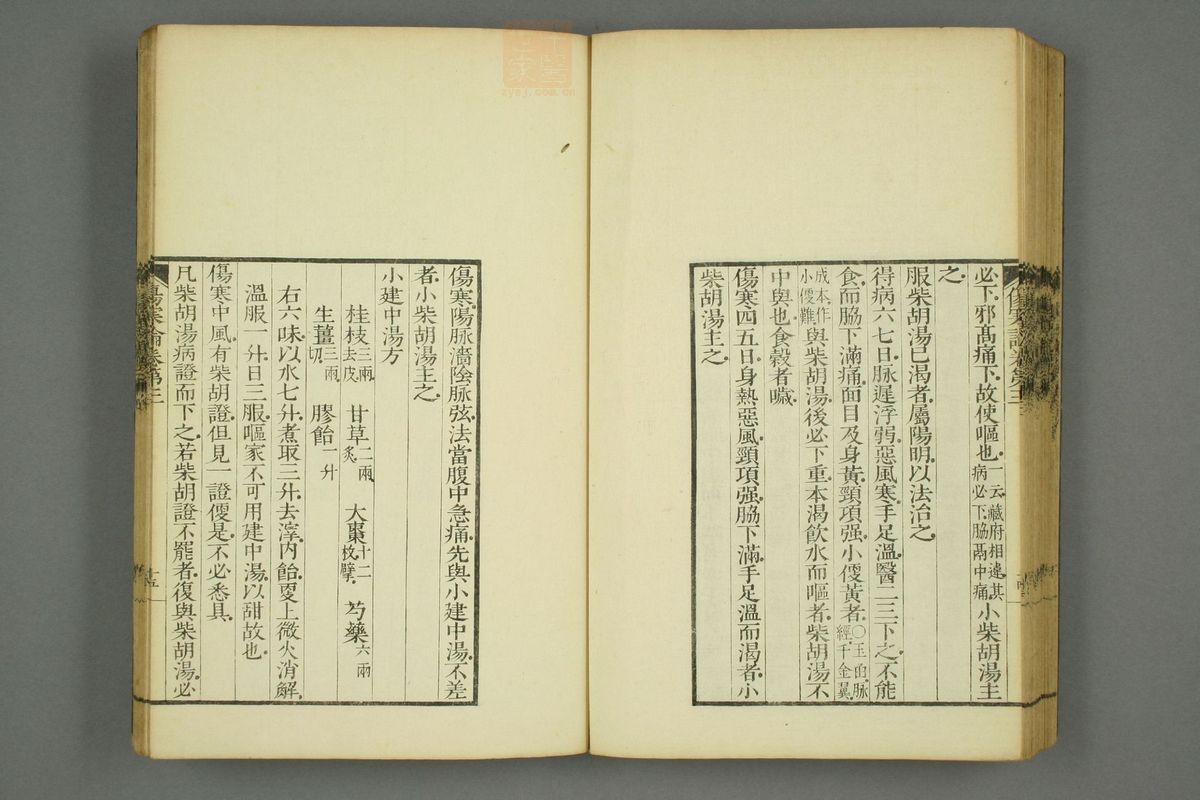 必下邪髙痛下故使嘔也一云藏府相違其病必下脇鬲中痛小柴胡湯主
之
服柴胡湯已渴者屬陽明以法治之
得病六七日脉遲浮弱惡風寒手足溫醫二三下之不能
食而脇下滿痛面目及身黃頸項强小便黃者〇玉函脉經千金翼
成本作小便難與柴胡湯後必下重本渴飲水而嘔者柴胡湯不
中與也食穀者噦
傷寒四五日身熱惡風頸項强脇下滿手足溫而渴者小
柴胡湯主之
傷寒陽脉濇陰脉弦法當腹中急痛先與小建中湯不差
者小柴胡湯主之
小建中湯方
桂枝三兩去皮 甘草二兩炙 大棗十二枚擘 芍藥六兩
生薑三兩切 膠飴一升
右六味以水七升煮取三升去滓内飴更上微火消解
溫服一升日三服嘔家不可用建中湯以甜故也
傷寒中風有柴胡證但見一證便是不必悉具
凡柴胡湯病證而下之若柴胡證不罷者復與柴胡湯必
傷寒論卷第三
十五
zysj.com.cn